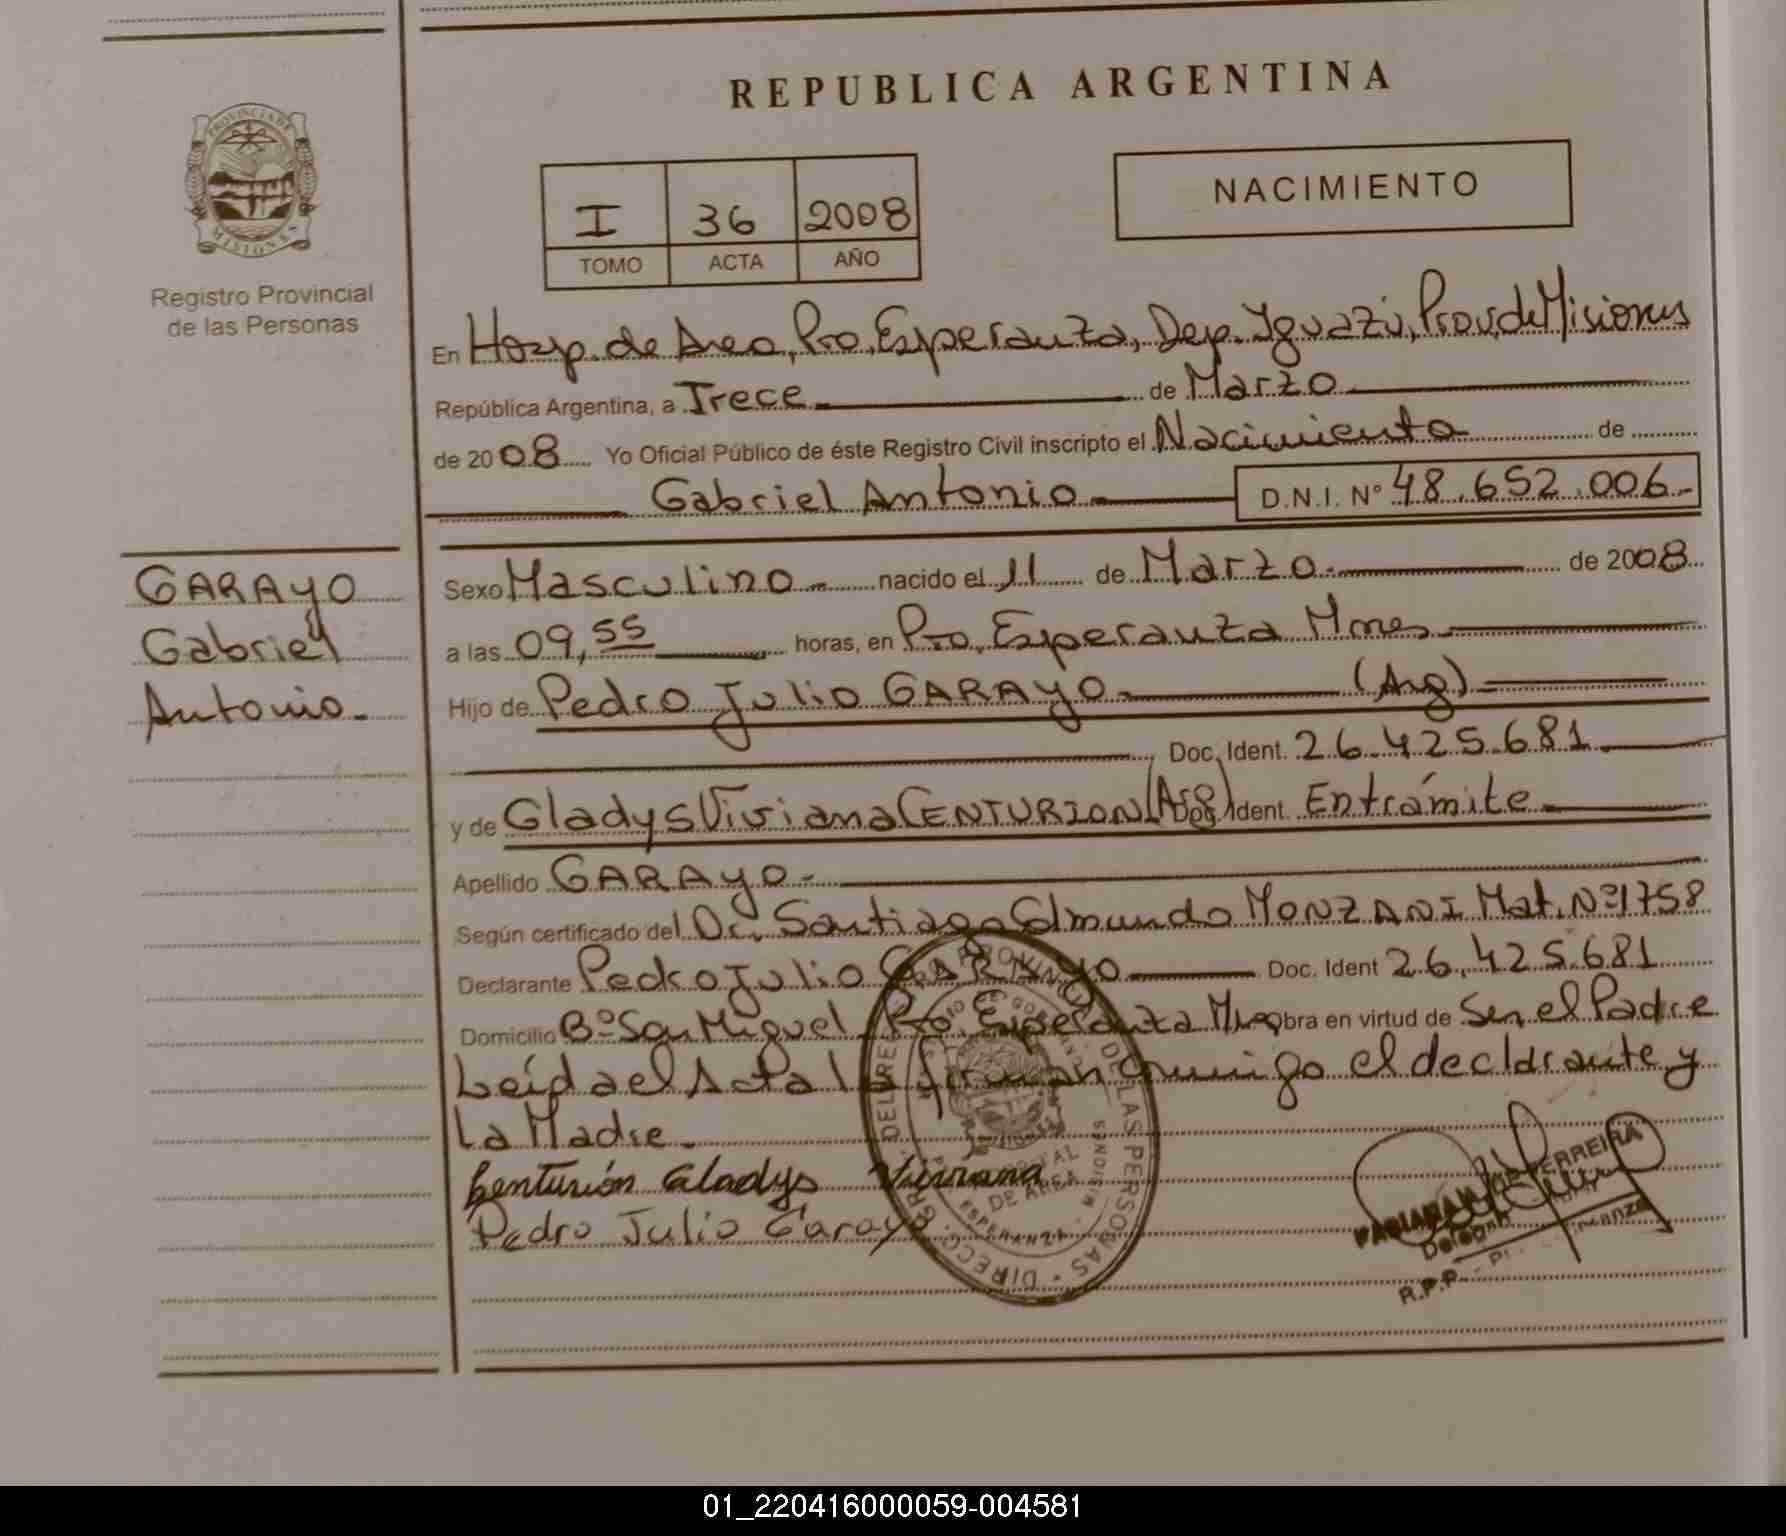 REPUBLICA ARGENTINA
PROVINCIA DE MISIONES
Registro Provincial
de las Personas
I 36 2008
TOMO ACTA AÑO
NACIMIENTO
En Hosp. de Area, Pto. Esperanza, Dep. Iguazú, Prov. de Misiones
República Argentina, a Trece de Marzo
de 2008 Yo Oficial Público de éste Registro Civil inscripto el Nacimiento de
Gabriel Antonio D.N.I. Nº 48.652.006.-
GARAYO
Gabriel
Antonio.-
Sexo Masculino.- nacido el 11 de Marzo.- de 2008
a las 09,55 horas, en Pto. Esperanza Mnes.-
Hijo de Pedro Julio GARAYO.- (Arg)
Doc. Ident. 26.425.681.
y de Gladys Viviana CENTURION (Arg) Doc. Ident. En trámite.-
Apellido GARAYO.-
Según certificado del Dr. Santiago Edmundo MONZANI Mat. Nº 1758
Declarante Pedro Julio GARAYO Doc. Ident 26.425.681
Domicilio Bº San Miguel Pto. Esperanza obra en virtud de Ser el Padre
Leída el Acta la firman conmigo el declarante y
La Madre.-
Centurión Gladys Viviana
Pedro Julio Garayo
DE LAS PERSONAS
DE AREA
ESPERANZA - MISIONES
FERREIRA
R.P.P.
01_220416000059-004581